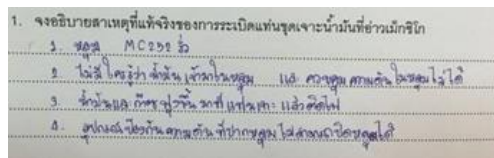 1. จงอธิบายสาเหตุที่แท้จริงของการระเบิดแท่นขุดเจาะน้ำมันที่อ่าวเม็กซิโก
1. หลุม MC252 รั่ว
2. ไม่มีใครรู้ว่าน้ำมันเข้ามาในหลุม และ ควบคุมความดันในหลุมไม่ได้
3. น้ำมันและก๊าซพุ่งขึ้นมาที่แท่นเจาะ แล้วติดไฟ
4. อุปกรณ์ป้องกันความดันที่ปากหลุมไม่สามารถปิดหลุมได้